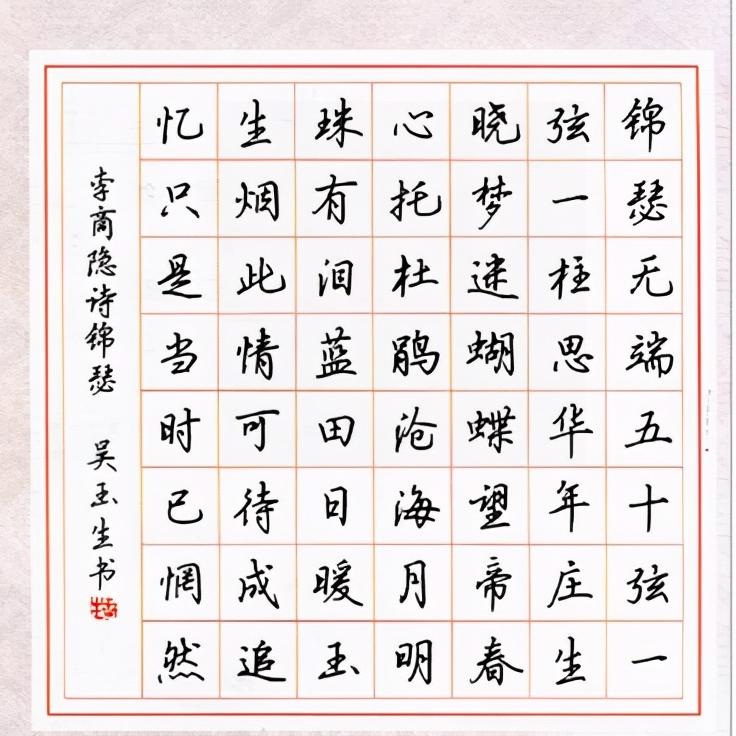 锦瑟无端五十弦一
弦一柱思华年庄生
晓梦迷蝴蝶望帝春
心托杜鹃沧海月明
珠有泪蓝田日暖玉
生烟此情可待成追
忆只是当时已惘然
李商隐诗锦瑟 吴玉生书